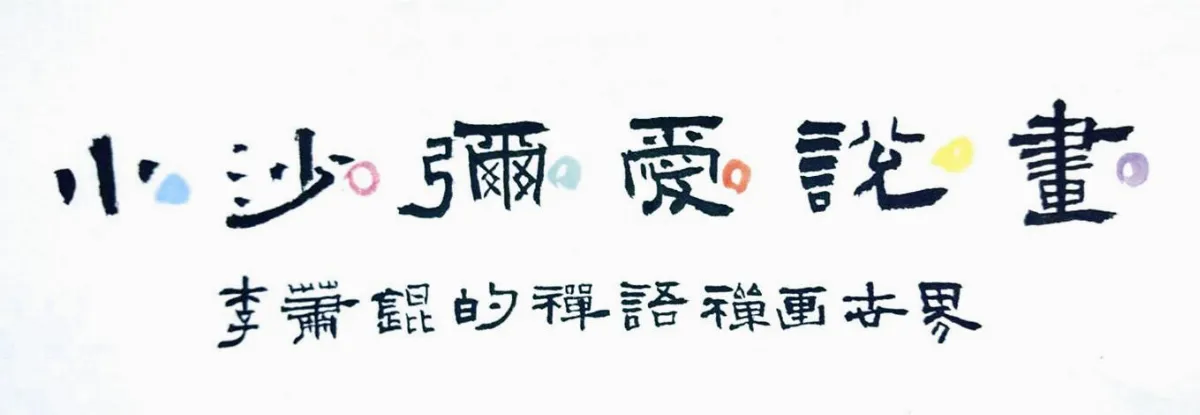 小沙彌愛說畫
李蕭錕的禪語禪畫世界